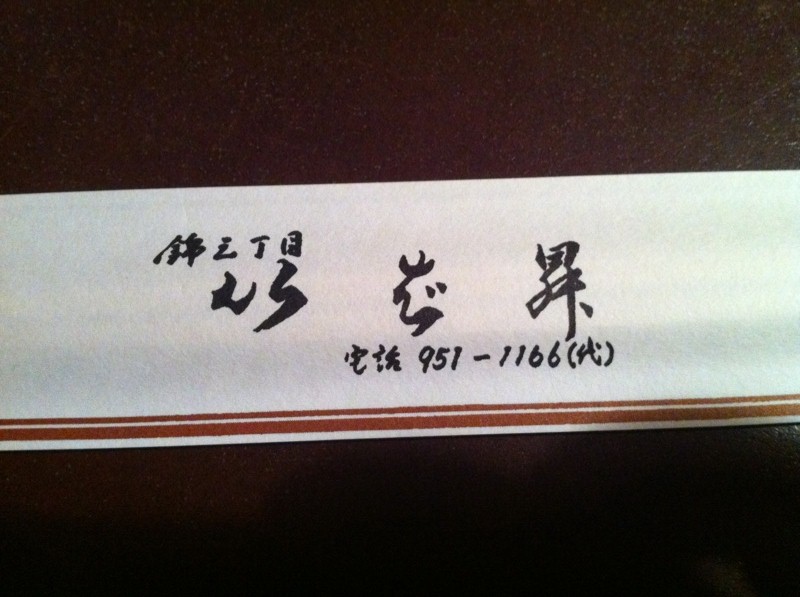 錦三丁目
いば昇
電話 951-1166(代)